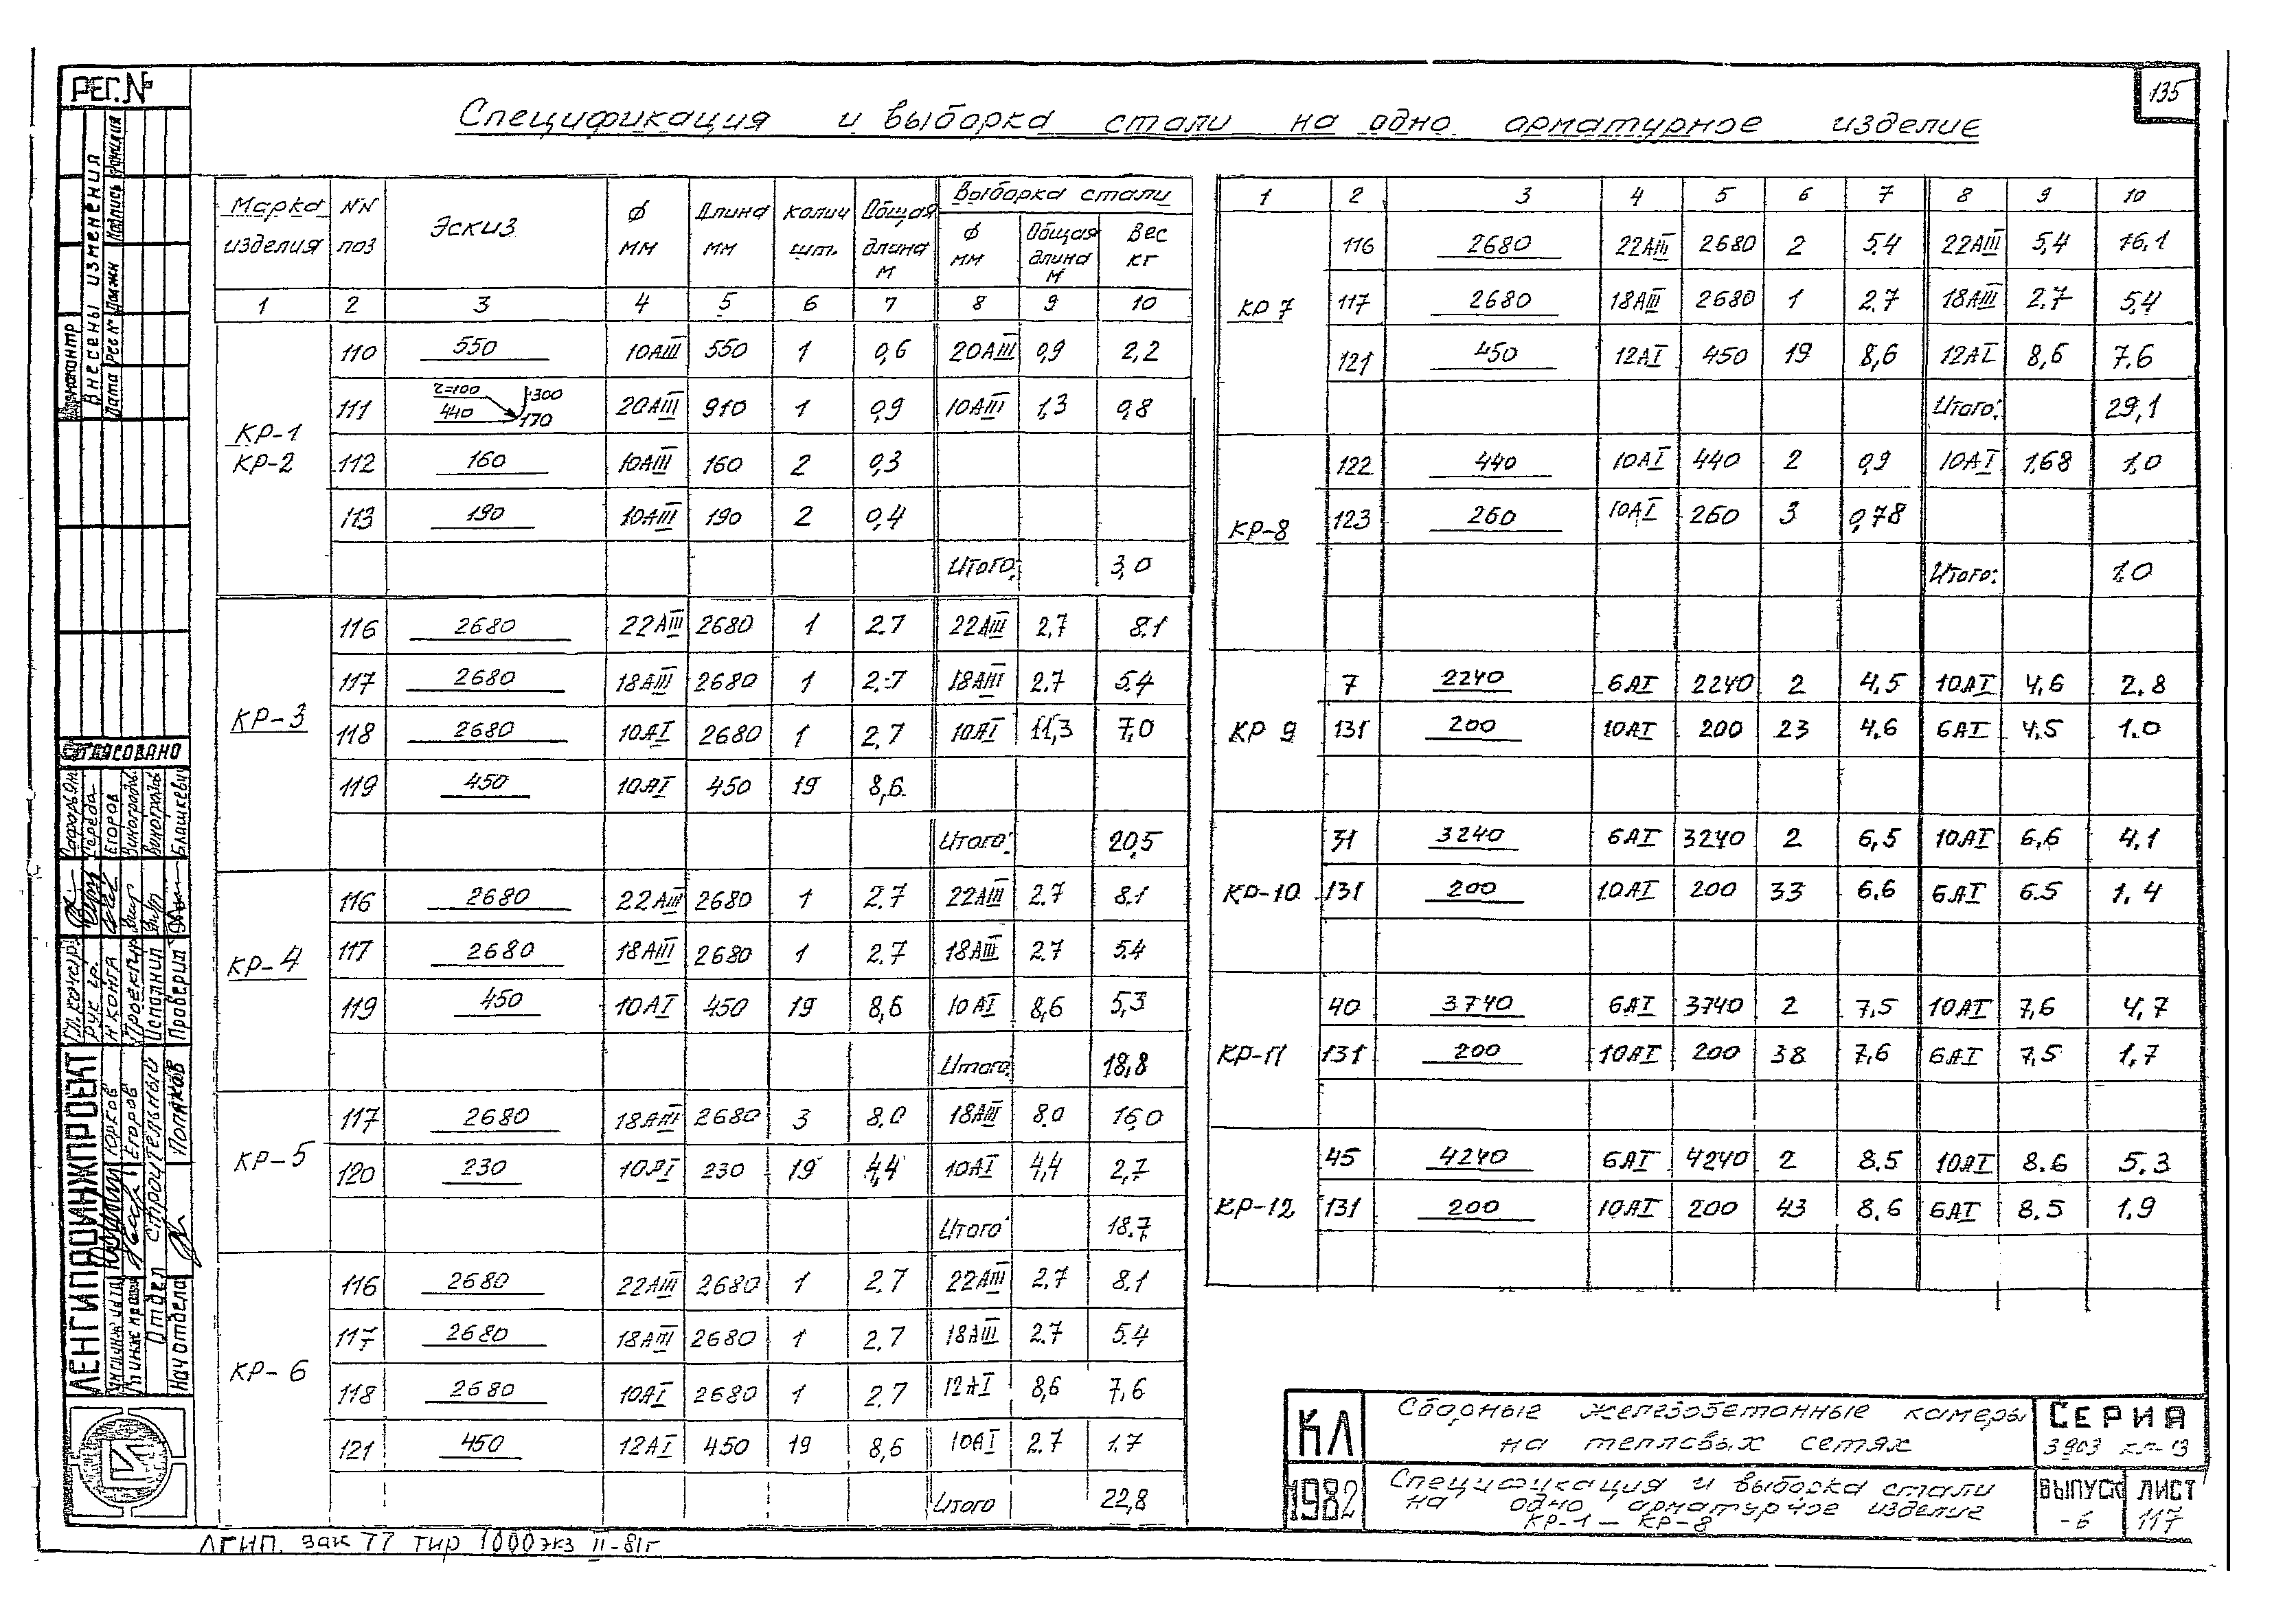 РЕГ. №
135
Спецификация и выборка стали на одно арматурное изделие
Марка изделия | NN поз | Эскиз | ф мм | Длина мм | колич шт. | Общая длина м | Выборка стали
ф мм | Общая длина м | Вес кг
1 2 3 4 5 6 7 8 9 10
КР-1
КР-2
110 550 10АIII 550 1 0,6 20АIII 0,9 2,2
111 r=100 440 300 170 20АIII 910 1 0,9 10АIII 1,3 0,8
112 160 10АIII 160 2 0,3
113 190 10АIII 190 2 0,4
Итого: 3,0
КР-3
116 2680 22АIII 2680 1 2.7 22АIII 2,7 8.1
117 2680 18АIII 2680 1 2.7 18АIII 2.7 5.4
118 2680 10АI 2680 1 2,7 10АI 11,3 7,0
119 450 10АI 450 19 8,6
Итого: 20,5
КР-4
116 2680 22АIII 2680 1 2.7 22АIII 2.7 8.1
117 2680 18АIII 2680 1 2.7 18АIII 2.7 5.4
119 450 10АI 450 19 8,6 10АI 8,6 5,3
Итого: 18,8
КР-5
117 2680 18АIII 2680 3 8.0 18АIII 8.0 16,0
120 230 10АI 230 19 4,4 10АI 4,4 2,7
Итого 18.7
КР-6
116 2680 22АIII 2680 1 2.7 22АIII 2.7 8.1
117 2680 18АIII 2680 1 2.7 18АIII 2.7 5.4
118 2680 10АI 2680 1 2.7 12АI 8,6 7,6
121 450 12АI 450 19 8,6 10АI 2.7 1.7
Итого 22,8
1 2 3 4 5 6 7 8 9 10
КР 7
116 2680 22АIII 2680 2 5.4 22АIII 5,4 16,1
117 2680 18АIII 2680 1 2.7 18АIII 2.7 5,4
121 450 12АI 450 19 8,6 12АI 8,6 7.6
Итого: 29,1
КР-8
122 440 10АI 440 2 0,9 10АI 1,68 1,0
123 260 10АI 260 3 0,78
Итого: 1.0
КР 9
7 2240 6АI 2240 2 4,5 10АI 4,6 2.8
131 200 10АI 200 23 4.6 6АI 4.5 1.0
КР-10
31 3240 6АI 3240 2 6,5 10АI 6,6 4.1
131 200 10АI 200 33 6.6 6АI 6.5 1.4
КР-11
40 3740 6АI 3740 2 7,5 10АI 7,6 4,7
131 200 10АI 200 38 7,6 6АI 7,5 1,7
КР-12
45 4240 6АI 4240 2 8.5 10АI 8.6 5.3
131 200 10АI 200 43 8.6 6АI 8.5 1.9
КЛ
1982
Сборные железобетонные камеры
на тепловых сетях
СЕРИЯ
3 903 кл-13
Спецификация и выборка стали
на одно арматурное изделие
КР-1 — КР-8
ВЫПУСК
-6
ЛИСТ
117
ЛГИП. зак 77 тир 1000 экз II-81г
Внесены изменения
Дата
Рег №
Должн
СОГЛАСОВАНО
Переда
Егоров
Виноградов
Виноградов
Блашкевич
Рук гр.
Исполнил
Проверил
ЛЕНГИПРОИНЖПРОЕКТ
Юрков
Егоров
Отдел строительный
Нач отдела
Поляков